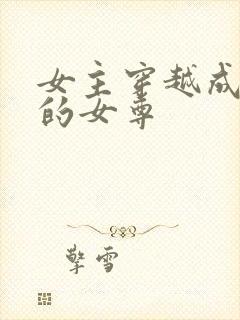 女主穿越成
的女尊
擎雪